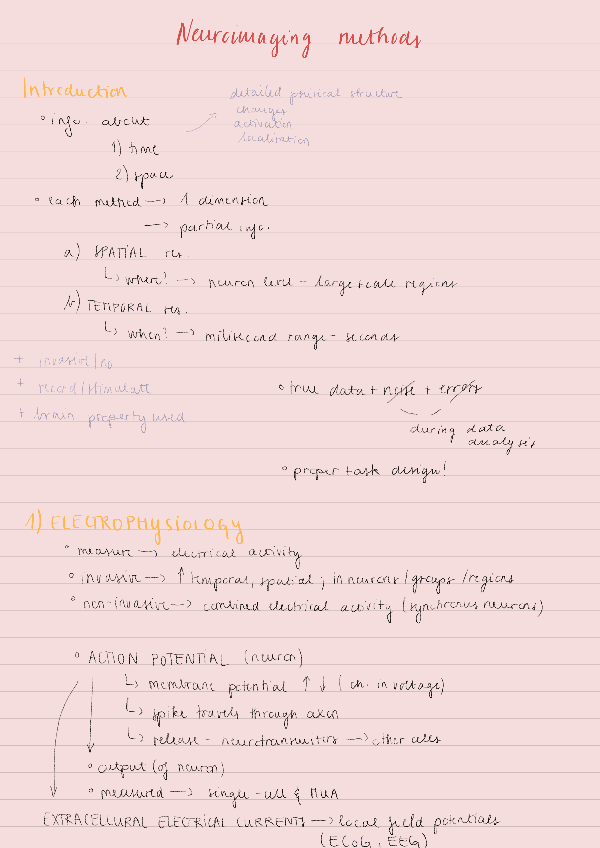 Neuroimaging methods
Introduction
detailed physical structure
changes
activation
localization
° info. about
1) time
2) space
° each method → 1 dimension
→ partial info.
a) SPATIAL res.
↳ where? → neuron level – large scale regions
b) TEMPORAL res.
↳ when? → milisecond range – seconds
+ invasive/no
+ record/stimulate
+ brain property used
° true data + noise + errors
during data
analysis
° proper task design!
1) ELECTROPHYSIOLOGY
° measure → electrical activity
° invasive → ↑ temporal, spatial ; in neurons/groups/regions
° non-invasive → combined electrical activity (synchronus neurons)
° ACTION POTENTIAL (neuron)
↳ membrane potential ↑ ↓ (ch. in voltage)
↳ spike travels through axon
↳ release - neurotransmitters → other cells
° output (of neuron)
° measured → single-cell & MUA
EXTRACELLURAL ELECTRICAL CURRENTS → local field potentials
(ECoG, EEG)